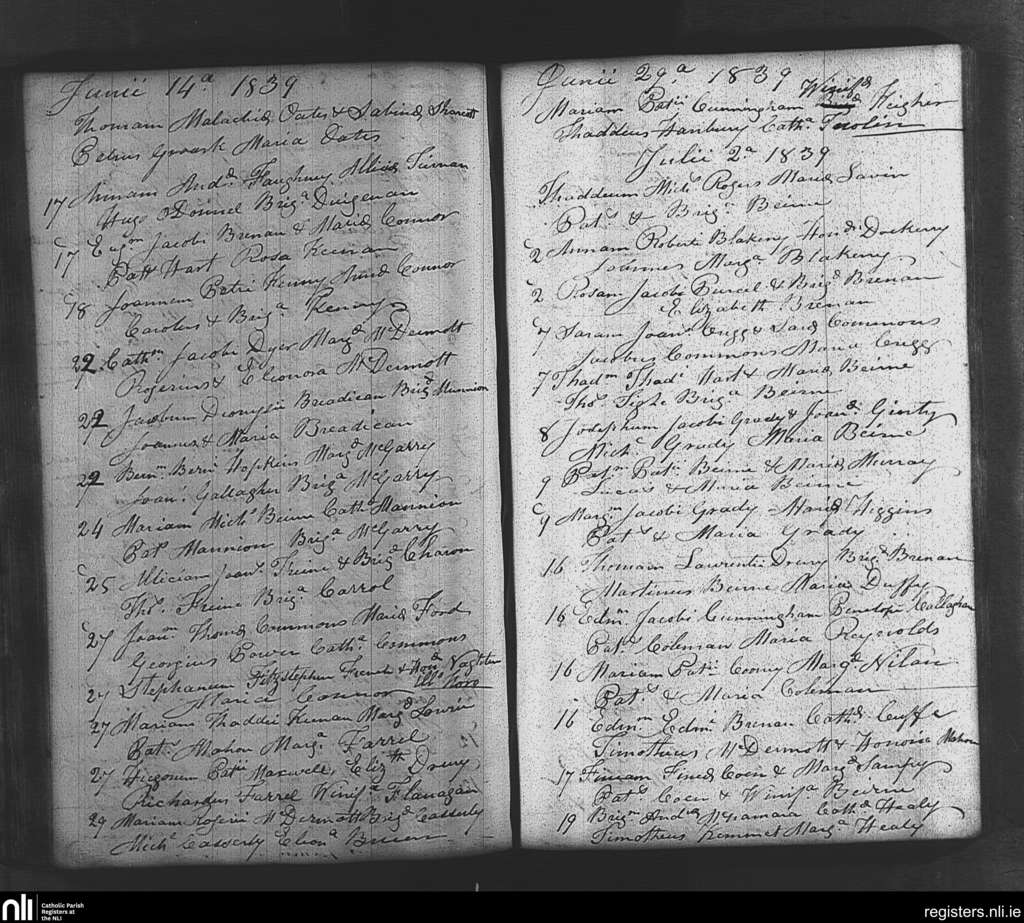 Junii 14a 1839
Thomam Malachiae Oates & Sabinae
Petrus Maria Oates
17 Annam Andae Faughney Aliciae Tiernan
Hugo O'Donnel Briga Duigenan
17 Eugm Jacobi Brenan & Mariae Connor
Patt Hart Rosa Keenan
18 Joannem Petri Kenny Connor
Carolus & Briga Kenny
22 Cathm Jacobi Dyer Margae McDermott
Rogerius & Eleonora McDermott
22 Jacobum Dionysii Breadican Brigae Munnion
Joannes & Maria Breadican
22 Bern Hopkins Margae McGarry
Joans Gallagher Briga McGarry
24 Mariam Michs Beirne Cathae Mannion
Pats Mannion Briga McGarry
25 Aliciam Joans Freine & Brigae Charon
Thos Freine Briga Carrol
27 Joanm Thomae Commons Mariae Ford
Georgius Power Catha Commons
27 Stephanum Fitzstephen French & Honae
Maria Connor
27 Mariam Thaddei Keenan Margae Lowrie
Pats Mahon Marga Farrel
27 Patii Maxwell, Elizth Drury
Richardus Farrel Winifa Flanagan
29 Mariam Rogerii McDermott Brigae Casserly
Michl Casserly Eleona
Junii 29a 1839
Mariam Patii Cunningham Winifae Heigher
Thaddeus Hanbury Catha Tuolin
Julii 2a 1839
Thaddeum Michs Rogers Mariae Lavin
Pats & Briga Beirne
2 Annam Roberti Blakeny Honae Dockerry
Joannes Marga Blakeny
2 Rosam Jacobi Purcel & Brigae Brenan
Elizabeth Brenan
7 Saram Joans Cugg & Sarae Commons
Jacobus Commons Maria Cugg
7 Thadm Thadi Hart & Mariae Beirne
Thos Tighe Briga Beirne
8 Josephum Jacobi Grady & Joanae Ginty
Michl Grady Maria Beirne
9 Patm Patii Beirne & Mariae Murray
Lucas & Maria Beirne
9 Margm Jacobi Grady Mariae Higgins
Pats & Maria Grady
16 Thomam Laurentii Drury Brigae Brenan
Martinus Beirne Maria Duffy
16 Edmm Jacobi Cunningham Penelope Callaghan
Pats Coleman Maria Reynolds
16 Mariam Patii Coony Margae Nilan
Pats & Maria Coleman
16 Edmm Edmi Brenan Cathae Cuffe
Timotheus McDermott & Honoria Mahon
17 Finae Coen & Margae
Pats Coen & Winifa Beirne
19 Brigm Andae McNamara Cathae Healy
Timotheus Marga Healy
nli
Catholic Parish
Registers at
the NLI
registers.nli.ie